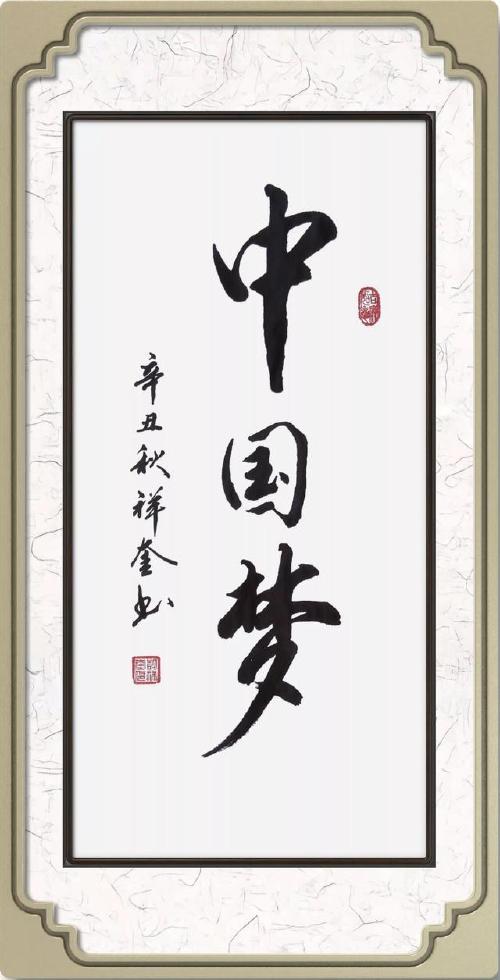 中国梦
辛丑秋祥奎书